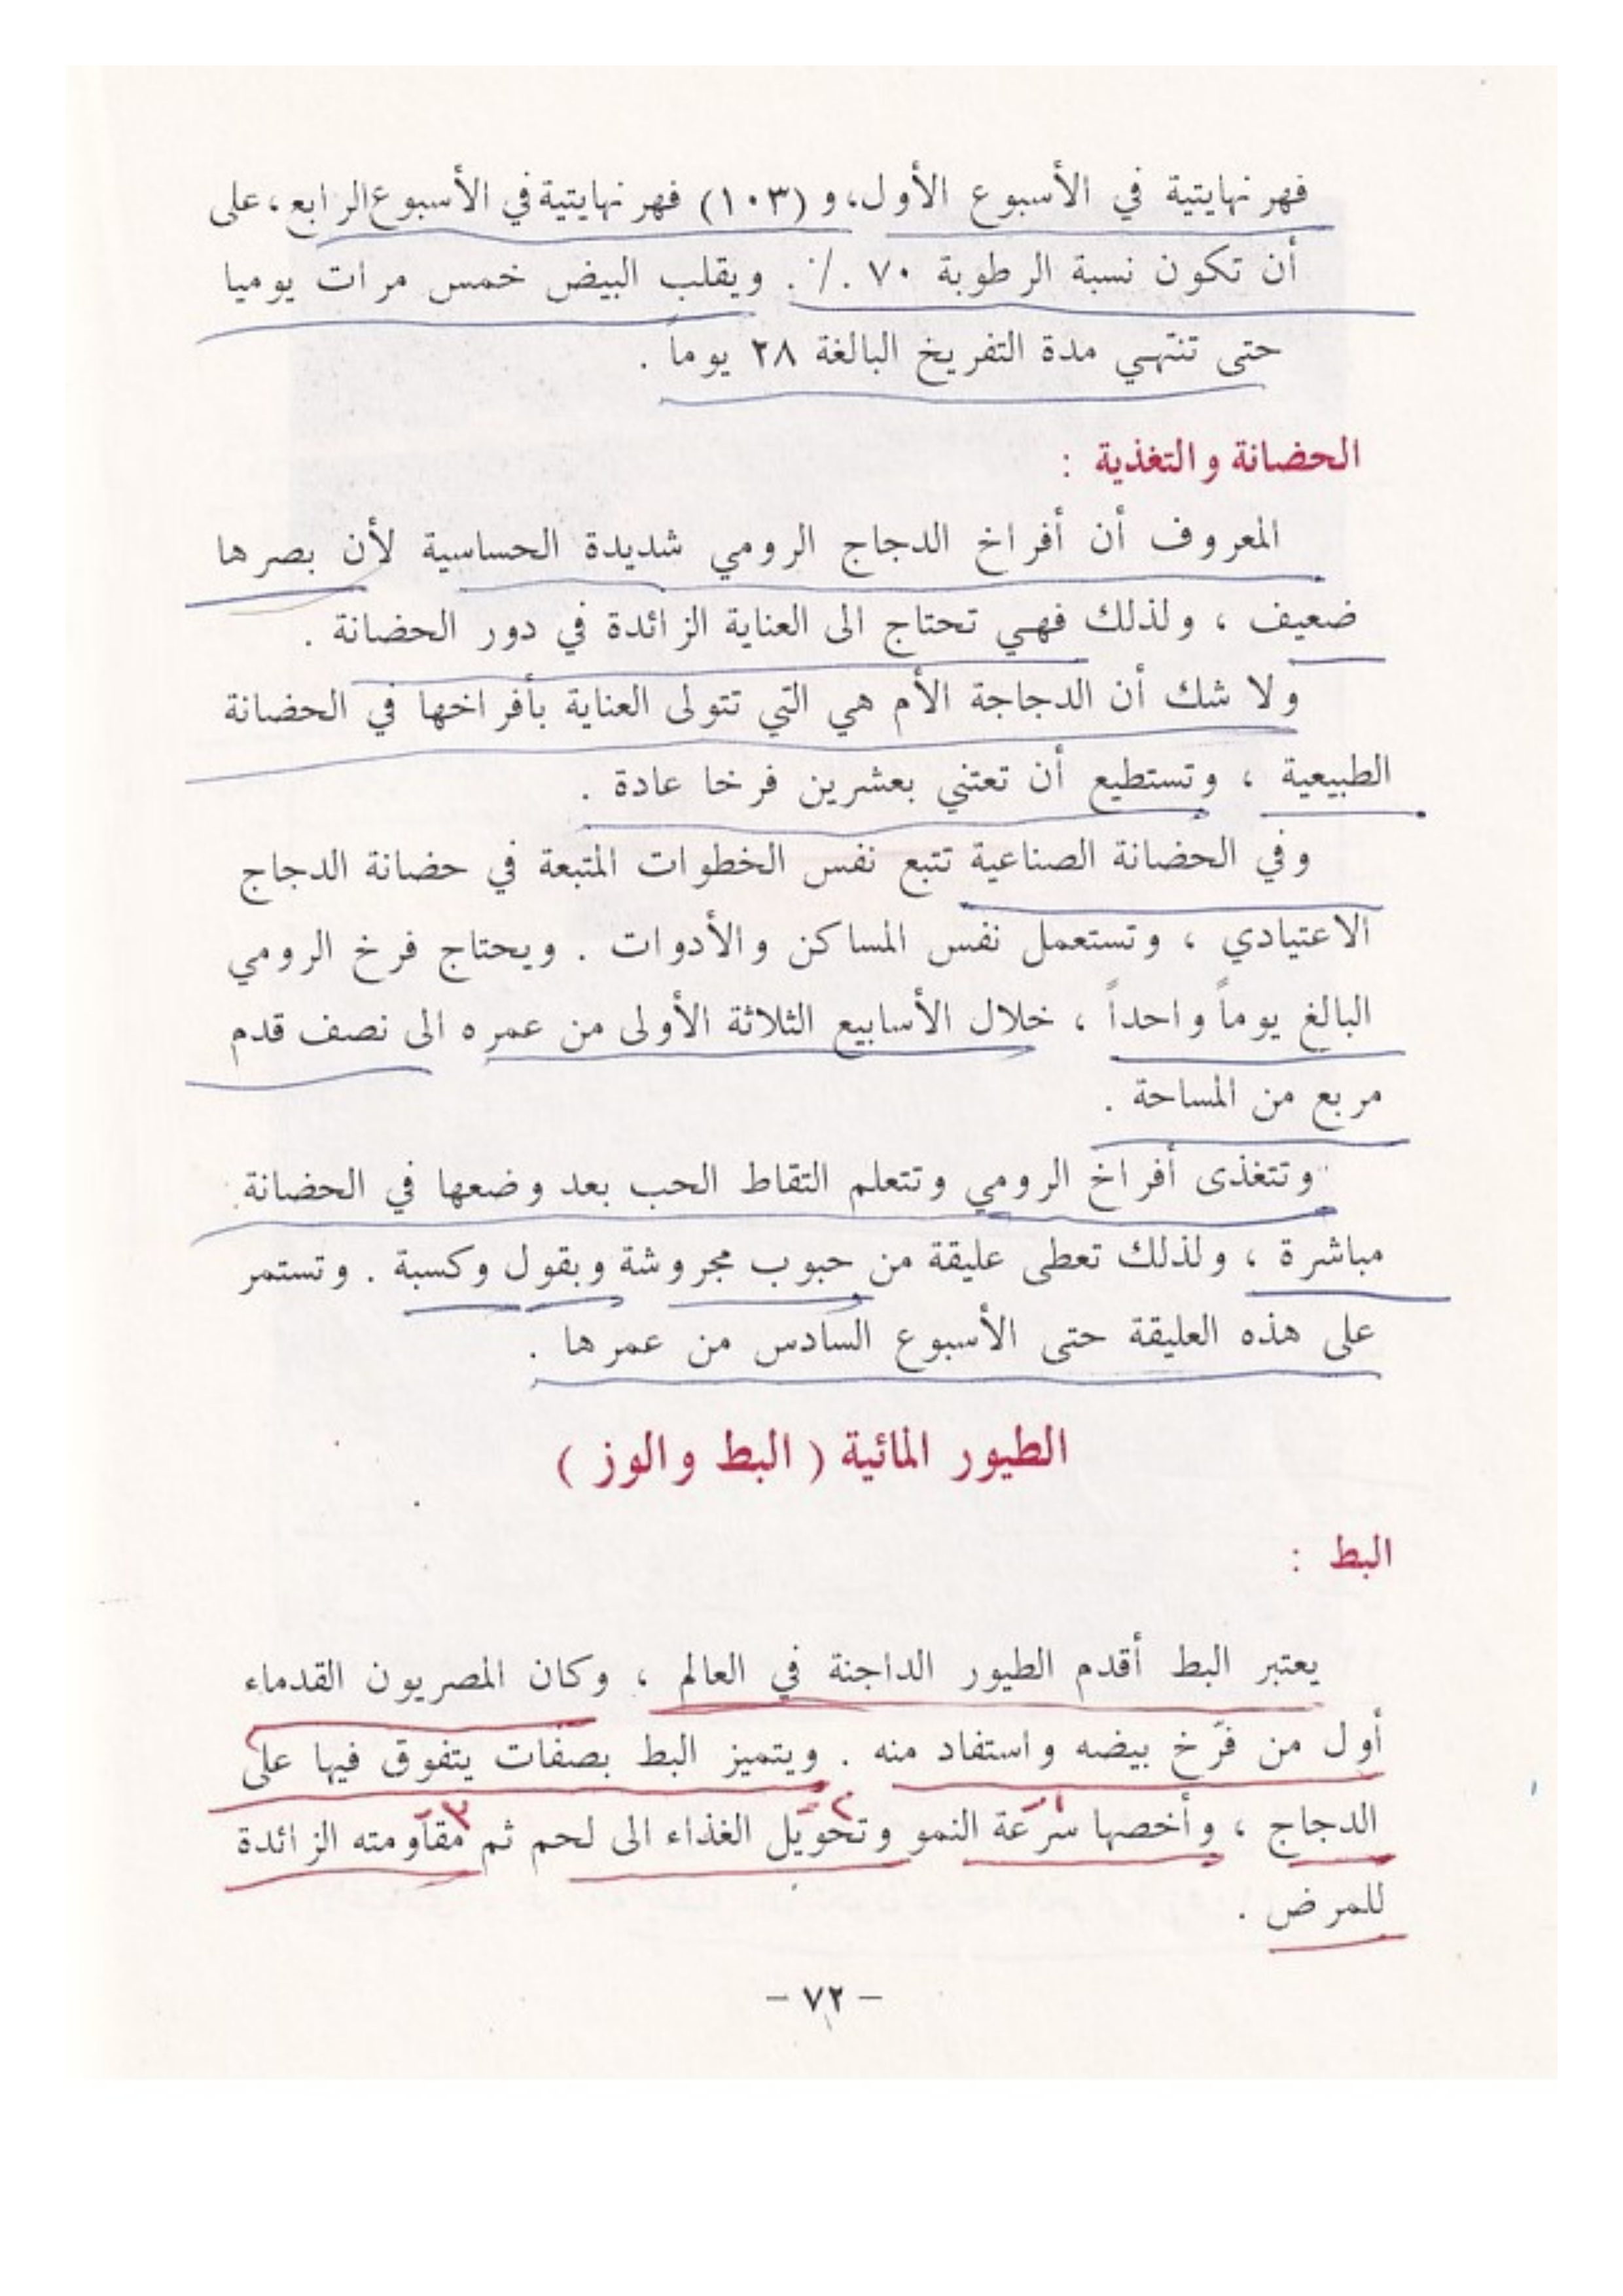 فهرنهايتية في الأسبوع الأول، و (١٠٣) فهرنهايتية في الأسبوع الرابع، على
أن تكون نسبة الرطوبة ٧٠ ٪ . ويقلب البيض خمس مرات يوميا
حتى تنتهي مدة التفريخ البالغة ٢٨ يوماً .
الحضانة والتغذية :
المعروف أن أفراخ الدجاج الرومي شديدة الحساسية لأن بصرها
ضعيف ، ولذلك فهي تحتاج الى العناية الزائدة في دور الحضانة .
ولا شك أن الدجاجة الأم هي التي تتولى العناية بأفراخها في الحضانة
الطبيعية ، وتستطيع أن تعتني بعشرين فرخا عادة .
وفي الحضانة الصناعية تتبع نفس الخطوات المتبعة في حضانة الدجاج
الاعتيادي ، وتستعمل نفس المساكن والأدوات . ويحتاج فرخ الرومي
البالغ يوماً واحداً ، خلال الأسابيع الثلاثة الأولى من عمره الى نصف قدم
مربع من المساحة .
وتتغذى أفراخ الرومي وتتعلم التقاط الحب بعد وضعها في الحضانة
مباشرة ، ولذلك تعطى عليقة من حبوب مجروشة وبقول وكسبة . وتستمر
على هذه العليقة حتى الأسبوع السادس من عمرها .
الطيور المائية ( البط والوز )
البط :
يعتبر البط أقدم الطيور الداجنة في العالم ، وكان المصريون القدماء
أول من فرّخ بيضه واستفاد منه . ويتميز البط بصفات يتفوق فيها على
١- ٢- ٣-
الدجاج ، وأخصها سرعة النمو وتحويل الغذاء الى لحم ثم مقاومته الزائدة
للمرض .
– ٧٢ –